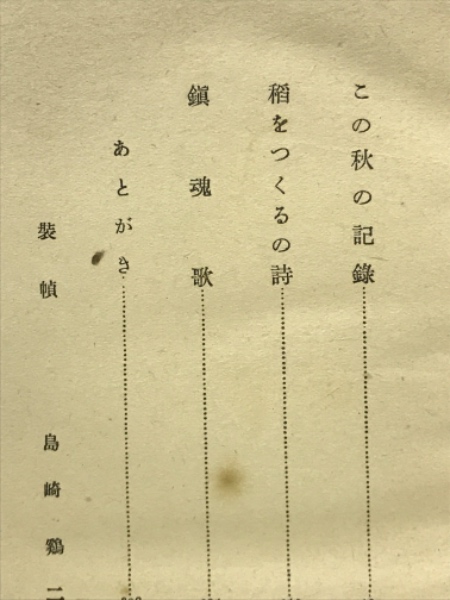 この秋の記錄
稻をつくるの詩
鎭魂歌
あとがき
裝幀　島崎鷄二